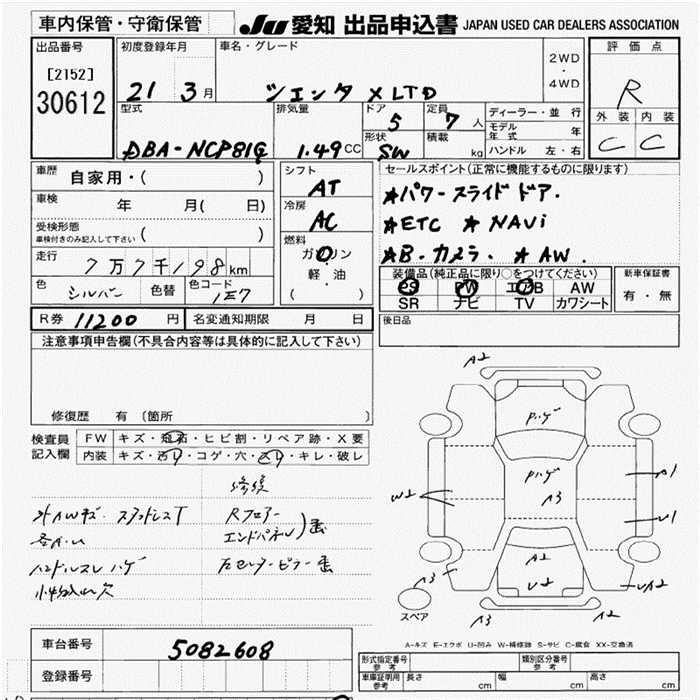 車内保管・守衛保管 JU 愛知 出品申込書 JAPAN USED CAR DEALERS ASSOCIATION
出品番号 初度登録年月 車名・グレード 2WD・4WD 評価点
[2152]
30612 21 3月 シエンタ X LTD R
型式 排気量 ドア 定員 ディーラー・並行 外装 内装
5 7人 モデル年式 年
DBA-NCP81G 1.49CC 形状 SW 積載 kg ハンドル 左・右 C C
車歴 自家用・( ) シフト AT セールスポイント(正常に機能するものに限ります)
車検 年 月( 日) 冷房 AC ★パワースライドドア.
受検形態 車検付きのみ記入して下さい ( ) ★ETC ★NAVi
燃料 ガソリン・軽油 ( ) ★B.カメラ. ★AW.
走行 7万7千198km 装備品(純正品に限り○をつけてください) 新車保証書
色 シルバー 色替 色コード 1E7 PS PW エアB AW 有・無
SR ナビ TV カワシート
R券 11200円 名変通知期限 月 日 後日品
注意事項申告欄(不具合内容等は具体的に記入して下さい)
修復歴 有(箇所 )
A2
検査員記入欄 FW キズ・飛石・ヒビ割・リペア跡・X要
内装 キズ・汚レ・コゲ・穴・スレ・キレ・破レ
修復
外AWキズ. スタッドレスT Rフロアー
エンドパネル
ハンドルスレ ハゲ
小物入れ欠
ハゲ
ハゲ
A3
W2
A1
U1
A2
U2
A3
UA2
スペア
A3 A2
A-キズ E-エクボ U-凹み W-補修跡 S-サビ C-腐食 XX-交換済
車台番号 5082608
登録番号
形式指定番号 参考 類別区分番号 参考
車庫証明用 参考 長さ cm 幅 cm 高さ cm